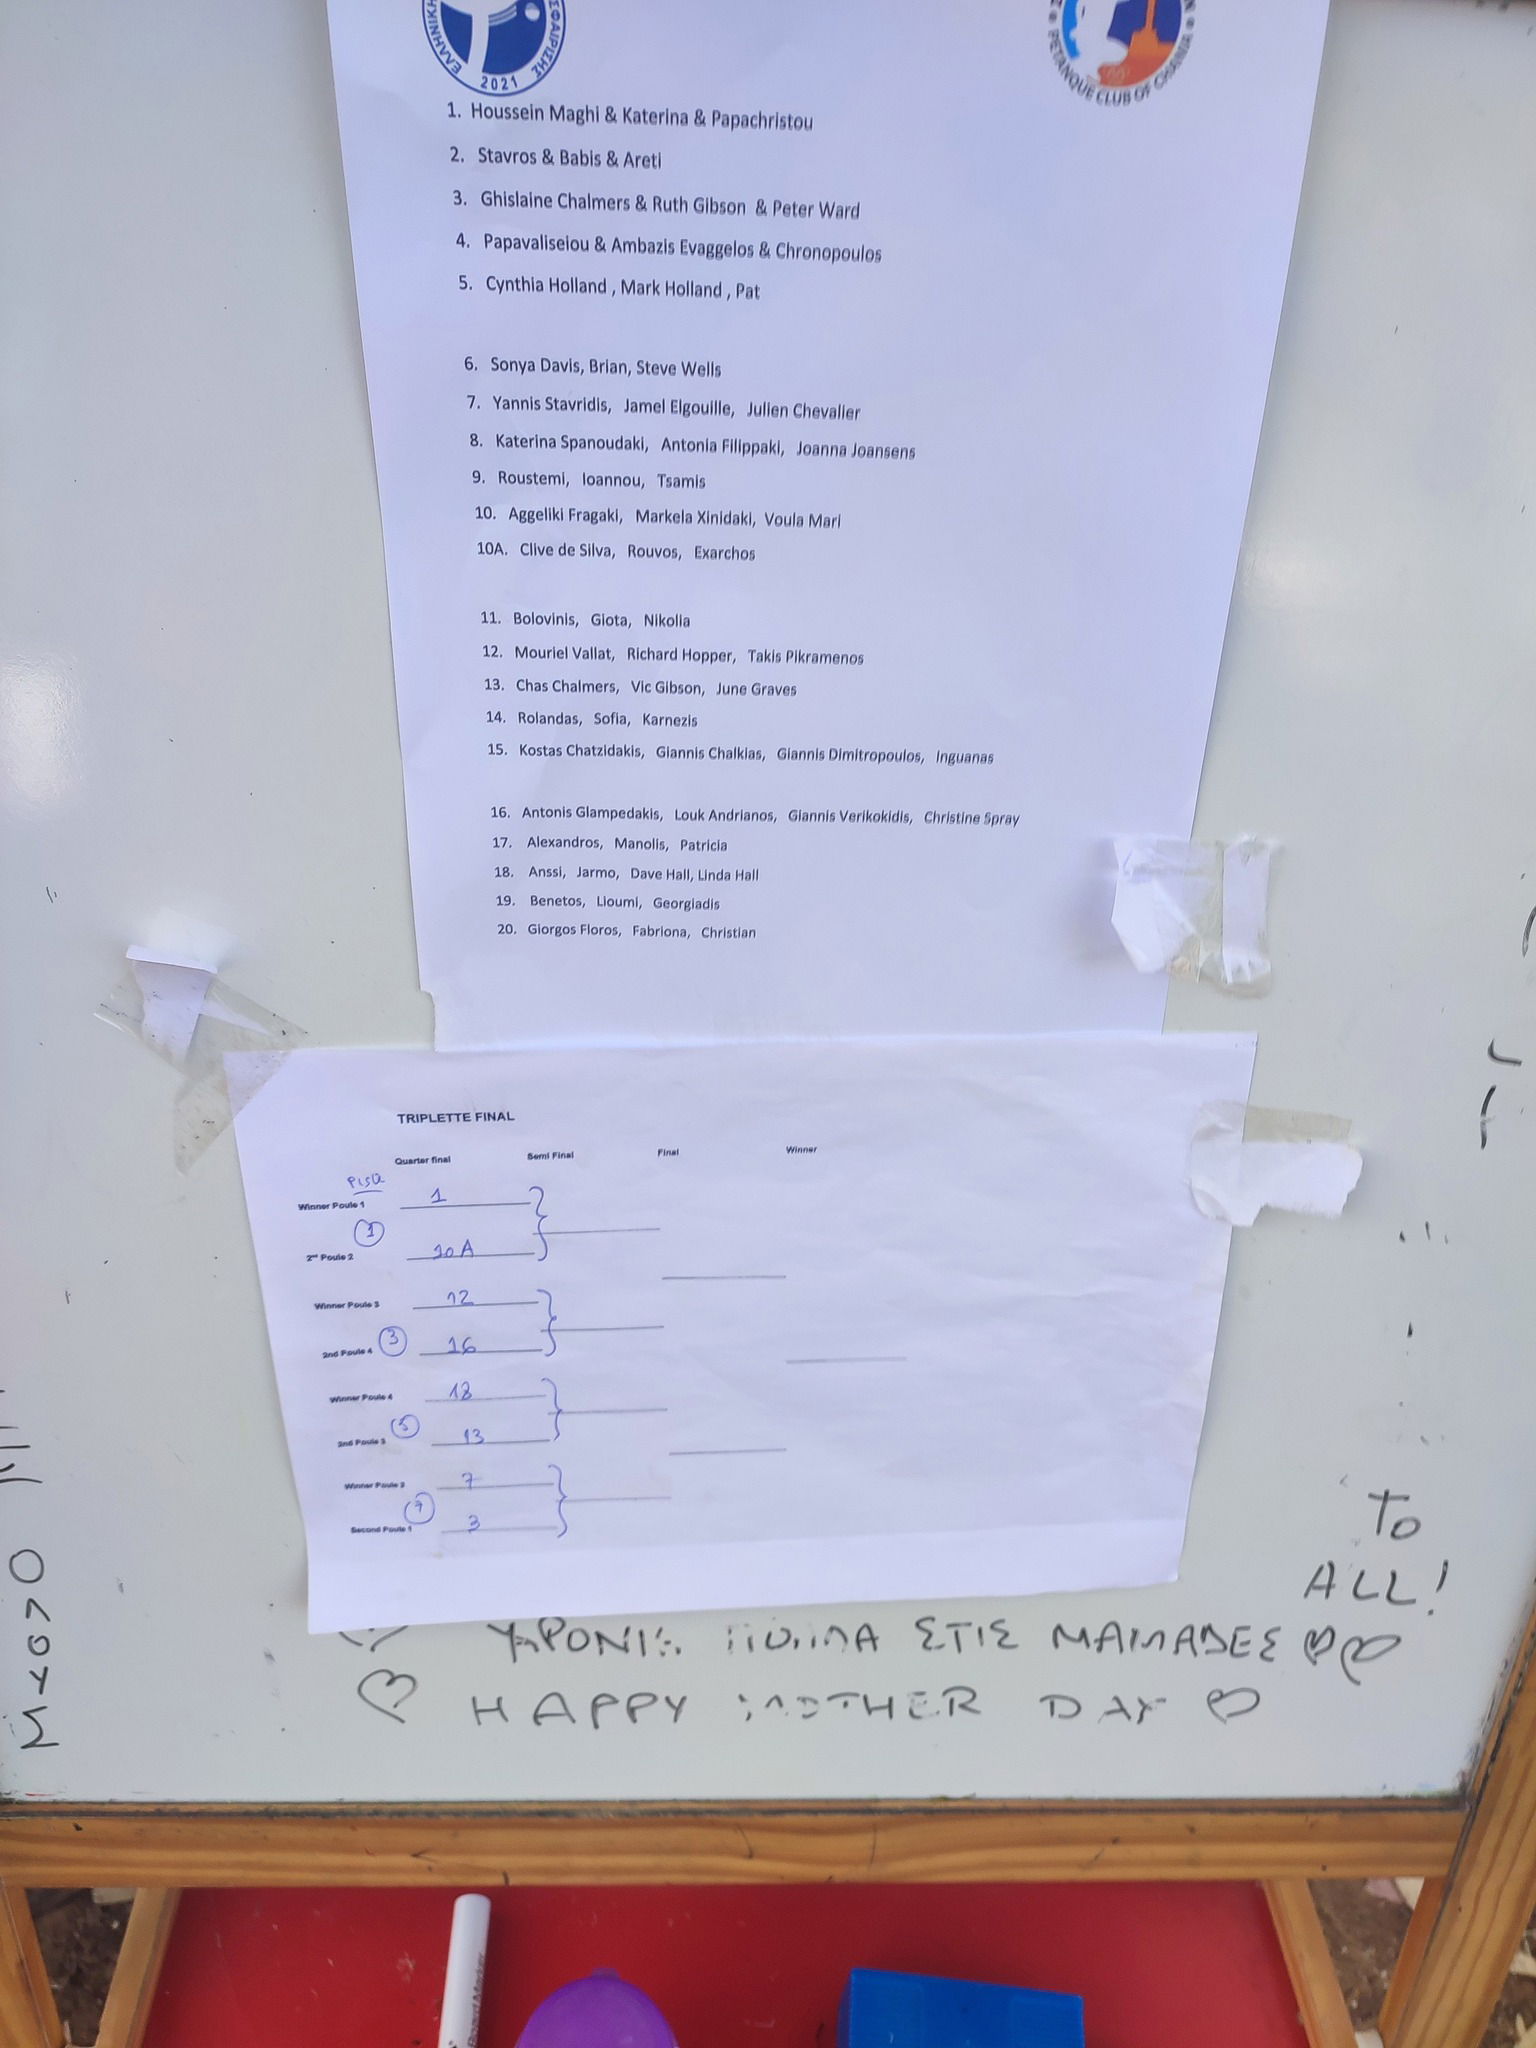 ΕΛΛΗΝΙΚΗ
ΣΦΑΙΡΙΣΗΣ
2021
PETANQUE CLUB OF CHANIA
1. Houssein Maghi & Katerina & Papachristou
2. Stavros & Babis & Areti
3. Ghislaine Chalmers & Ruth Gibson & Peter Ward
4. Papavaliseiou & Ambazis Evaggelos & Chronopoulos
5. Cynthia Holland , Mark Holland , Pat
6. Sonya Davis, Brian, Steve Wells
7. Yannis Stavridis, Jamel Elgouille, Julien Chevalier
8. Katerina Spanoudaki, Antonia Filippaki, Joanna Joansens
9. Roustemi, Ioannou, Tsamis
10. Aggeliki Fragaki, Markela Xinidaki, Voula Mari
10A. Clive de Silva, Rouvos, Exarchos
11. Bolovinis, Giota, Nikolia
12. Mouriel Vallat, Richard Hopper, Takis Pikramenos
13. Chas Chalmers, Vic Gibson, June Graves
14. Rolandas, Sofia, Karnezis
15. Kostas Chatzidakis, Giannis Chalkias, Giannis Dimitropoulos, Inguanas
16. Antonis Glampedakis, Louk Andrianos, Giannis Verikokidis, Christine Spray
17. Alexandros, Manolis, Patricia
18. Anssi, Jarmo, Dave Hall, Linda Hall
19. Benetos, Lioumi, Georgiadis
20. Giorgos Floros, Fabriona, Christian
TRIPLETTE FINAL
Quarter final Semi Final Final Winner
Winner Poule 1 1
1
2nd Poule 2 10A
Winner Poule 3 12
3
2nd Poule 4 16
Winner Poule 4 18
5
2nd Poule 3 13
Winner Poule 2 7
7
Second Poule 1 3
TO
ALL!
ΧΡΟΝΙΑ ΠΟΛΛΑ ΣΤΙΣ ΜΑΜΑΔΕΣ
HAPPY MOTHER DAY
Board Marker